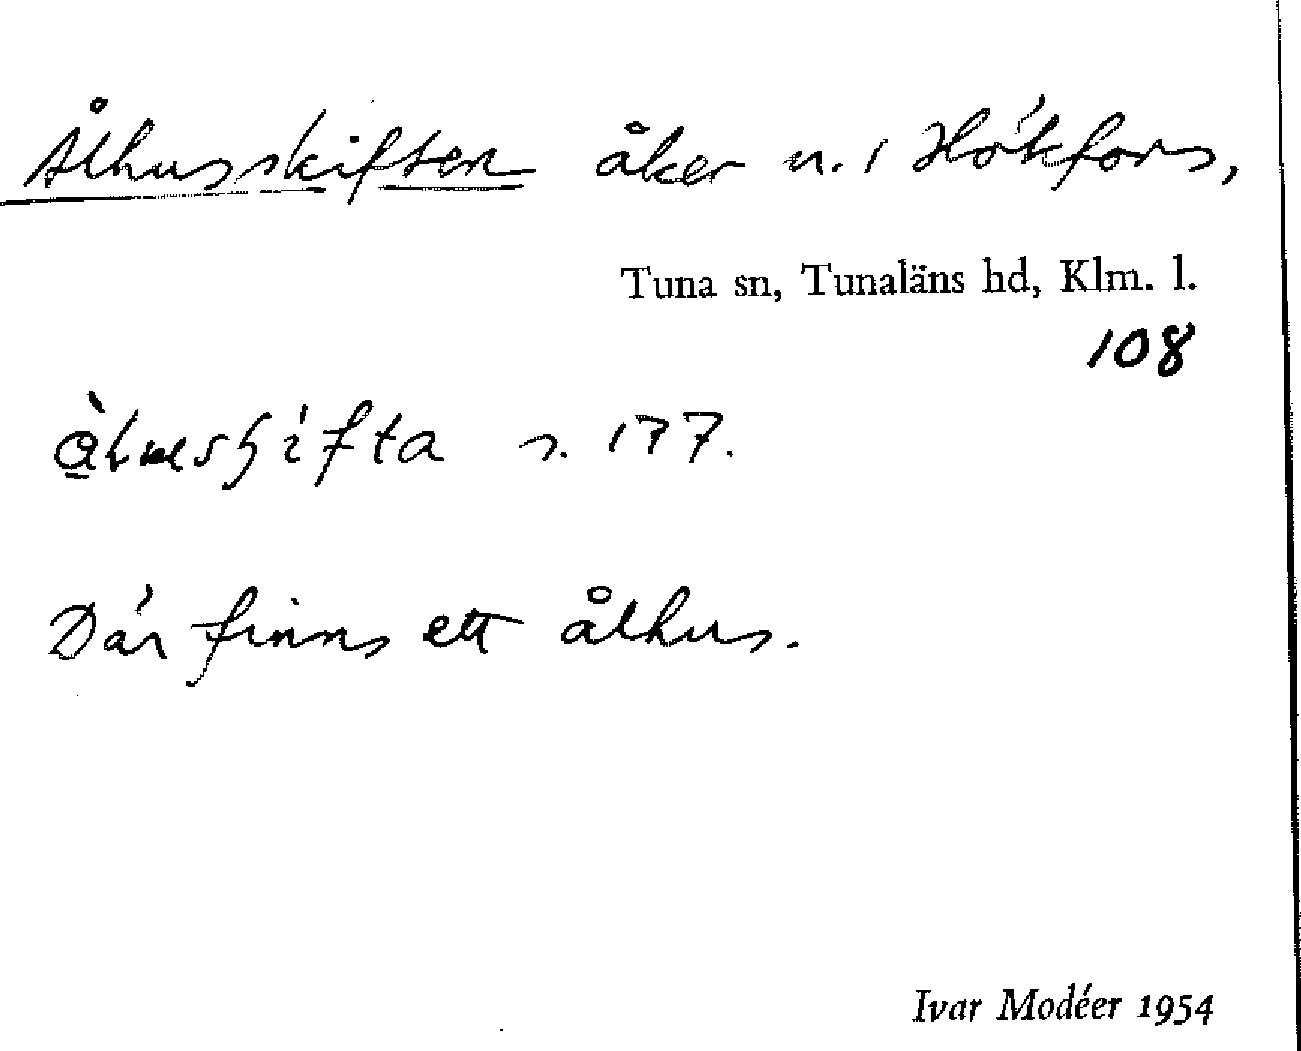 Ålhusskiften åker n. i Hökfors,
Tuna sn, Tunaläns hd, Klm. l.
108
s. 177.
Där finns ett ålhus.
Ivar Modéer 1954